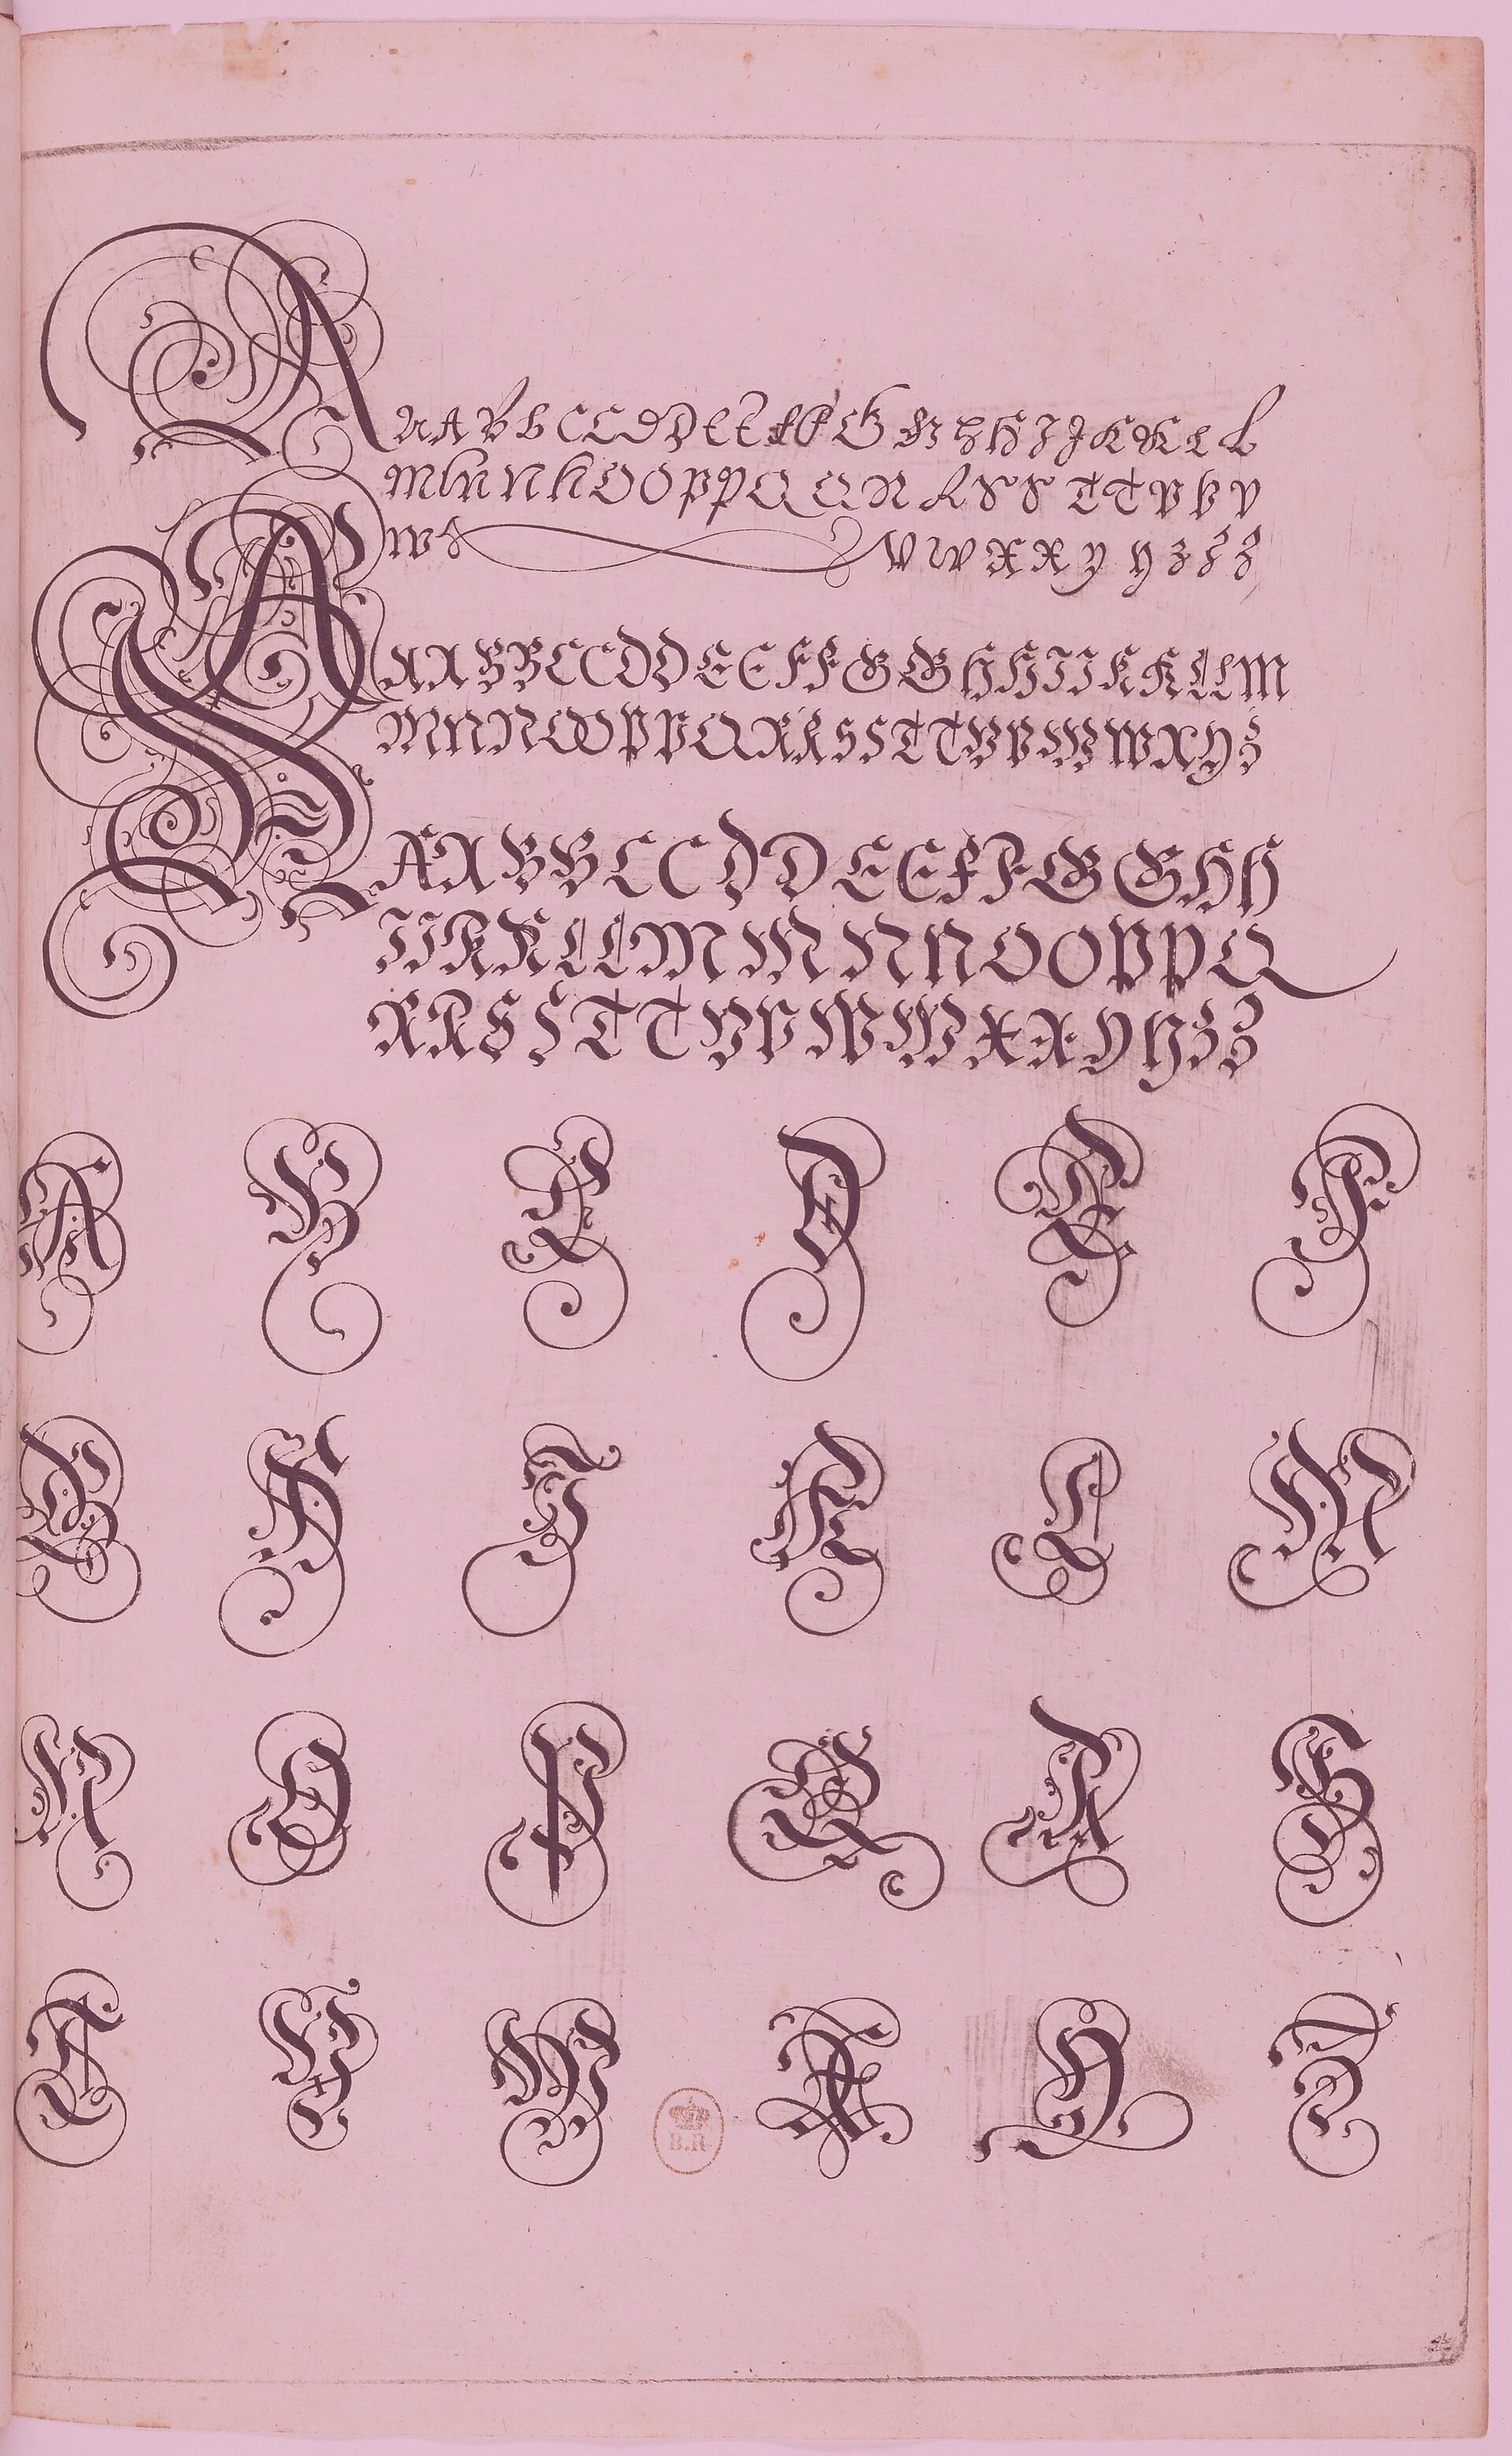 A
A A A B B C C D D E E F F G G H H H I J K K L L
M M N N N O O P P Q Q R R S S T T V V V
W W W W X X Y Y Z Z Z
A
A A B B C C D D E E F F G G H H I I K K L L M
M N N O O P P Q R R S S T T V V W W X Y Z
S
A A B B C C D D E E F F G G H H
I I K K L L M M N N O O P P Q
R R S S T T V V W W X X Y Y Z Z
A B C D E F
G H I K L M
N O P Q R S
T V W X Y Z
B.R.